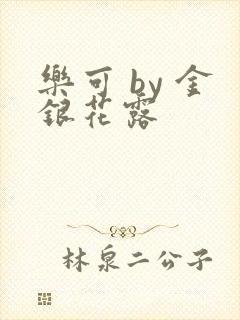 樂可 by 金
銀花露
林泉二公子